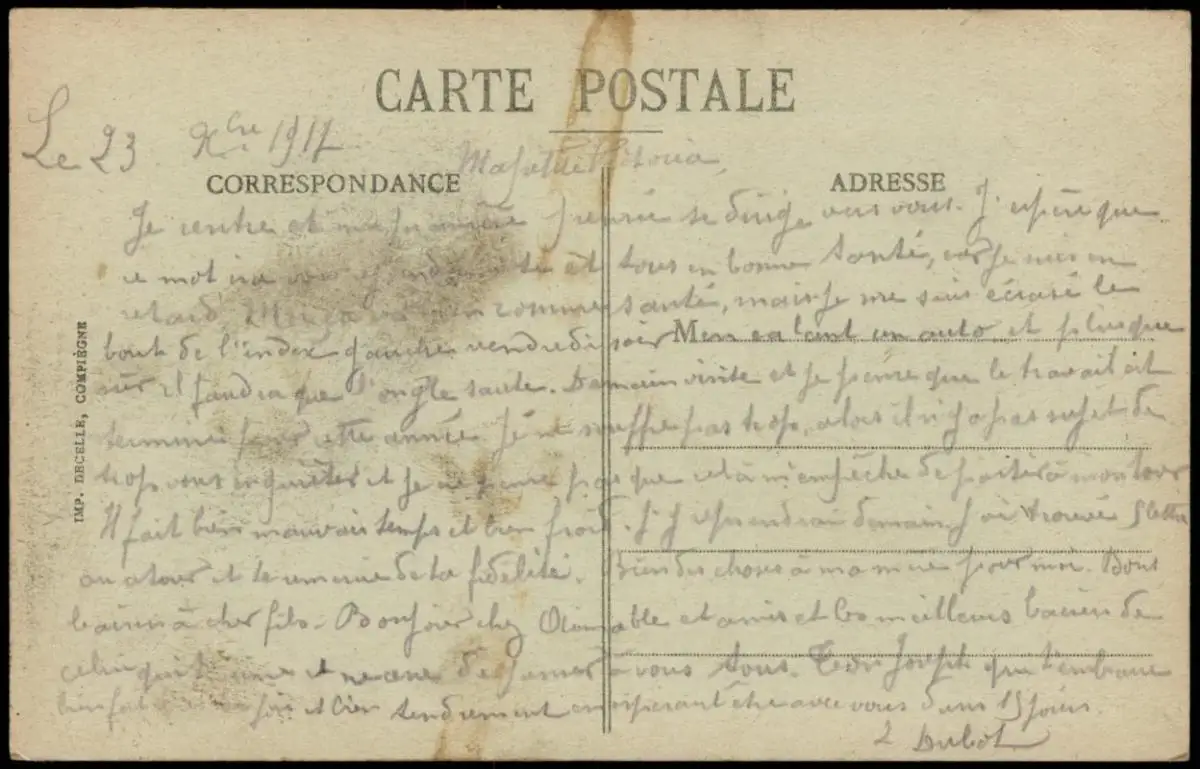 CARTE POSTALE
Le 23 Xbre 1917
Victoria,
CORRESPONDANCE
ADRESSE
Je rentre et ma première pensée se dirige vers vous. J'espère que
ce mot ira vous et tous en bonne santé, car je suis en
retard, comme santé, mais je me suis écrasé le
bout de l'index gauche vendredi soir en un auto et plus que
sûr il faudra que l'ongle saute. Demain visite et je pense que le travail est
terminé pour cette année je ne souffre pas trop, alors il n'y a pas sujet de
trop vous inquiéter et je ne pense pas que cela m'empêche de partir à mon tour
Il fait bien mauvais temps et bien froid. J'y reprendrai demain J'ai trouvé 5 lettres
au atour et te remercie de ta fidélité. Bien des choses à ma mère pour moi. Bons
baisers à cher fils. Bonjour chez aimable et amis et les meilleurs baisers de
celui qui t'aime et ne cesse de penser à vous tous. Ton Joseph qui t'embrasse
bien fort fois et bien tendrement en espérant être avec vous dans 15 jours.
Dubot
IMP. DECELLE, COMPIÈGNE